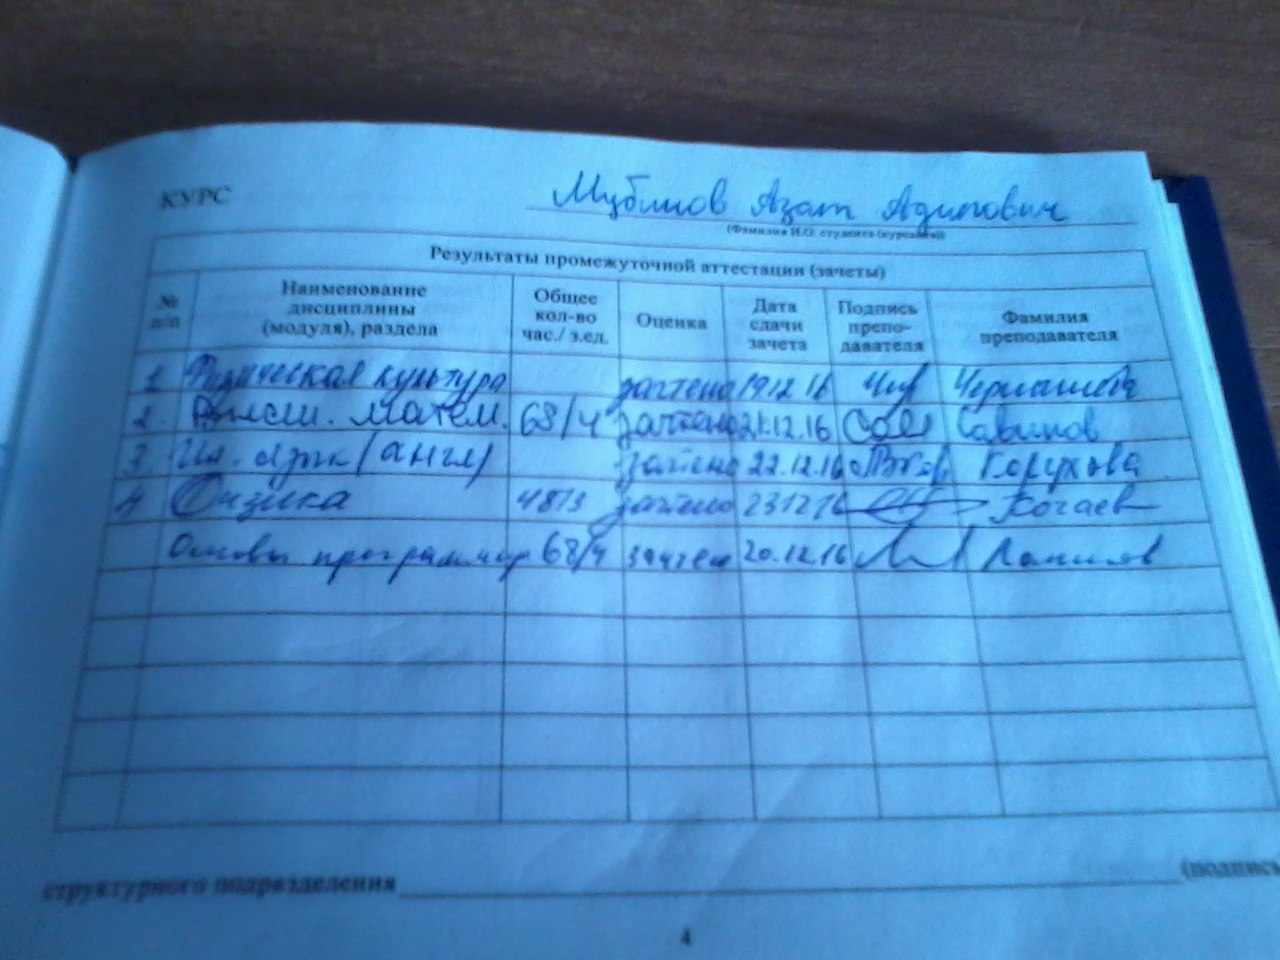 КУРС Мублинов Азат Адипович
(Фамилия И.О. студента (курсанта))
Результаты промежуточной аттестации (зачеты)
№ п/п Наименование дисциплины (модуля), раздела Общее кол-во час./ з.ед. Оценка Дата сдачи зачета Подпись препо-давателя Фамилия преподавателя
1 Физическая культура зачтено 19.12.16
2. Высш. матем. 68/4 зачтено 21.12.16 Савинов
3 Ин. язык (англ) зачтено 22.12.16 Горухова
4 Физика 48/3 зачтено 23.12.16 Кочаев
Основы программир 68/4 зачтен 20.12.16
структурного подразделения (подпись
4